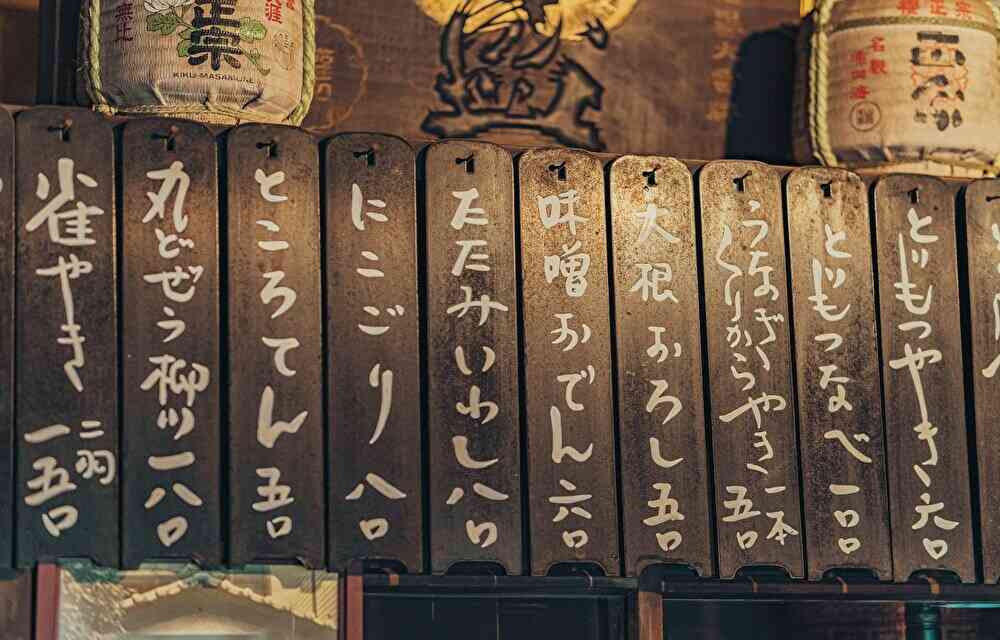 とりもつやき 六〇
とりもつなべ 一〇〇
うなぎくりからやき 一本 五〇
大根おろし 五〇
味噌おでん 六〇
たたみいわし 八〇
にこごり 八〇
ところてん 五〇
丸どぜう柳川 一八〇
雀やき 二羽 一五〇
正宗
KIKU-MASAMUNE